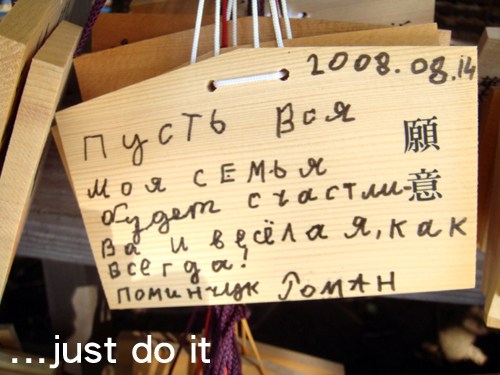 2008.08.14
Пусть вся
願意
моя семья
будет счастли-
ва и весёлая, как
всегда!
Поминчук Роман
...just do it